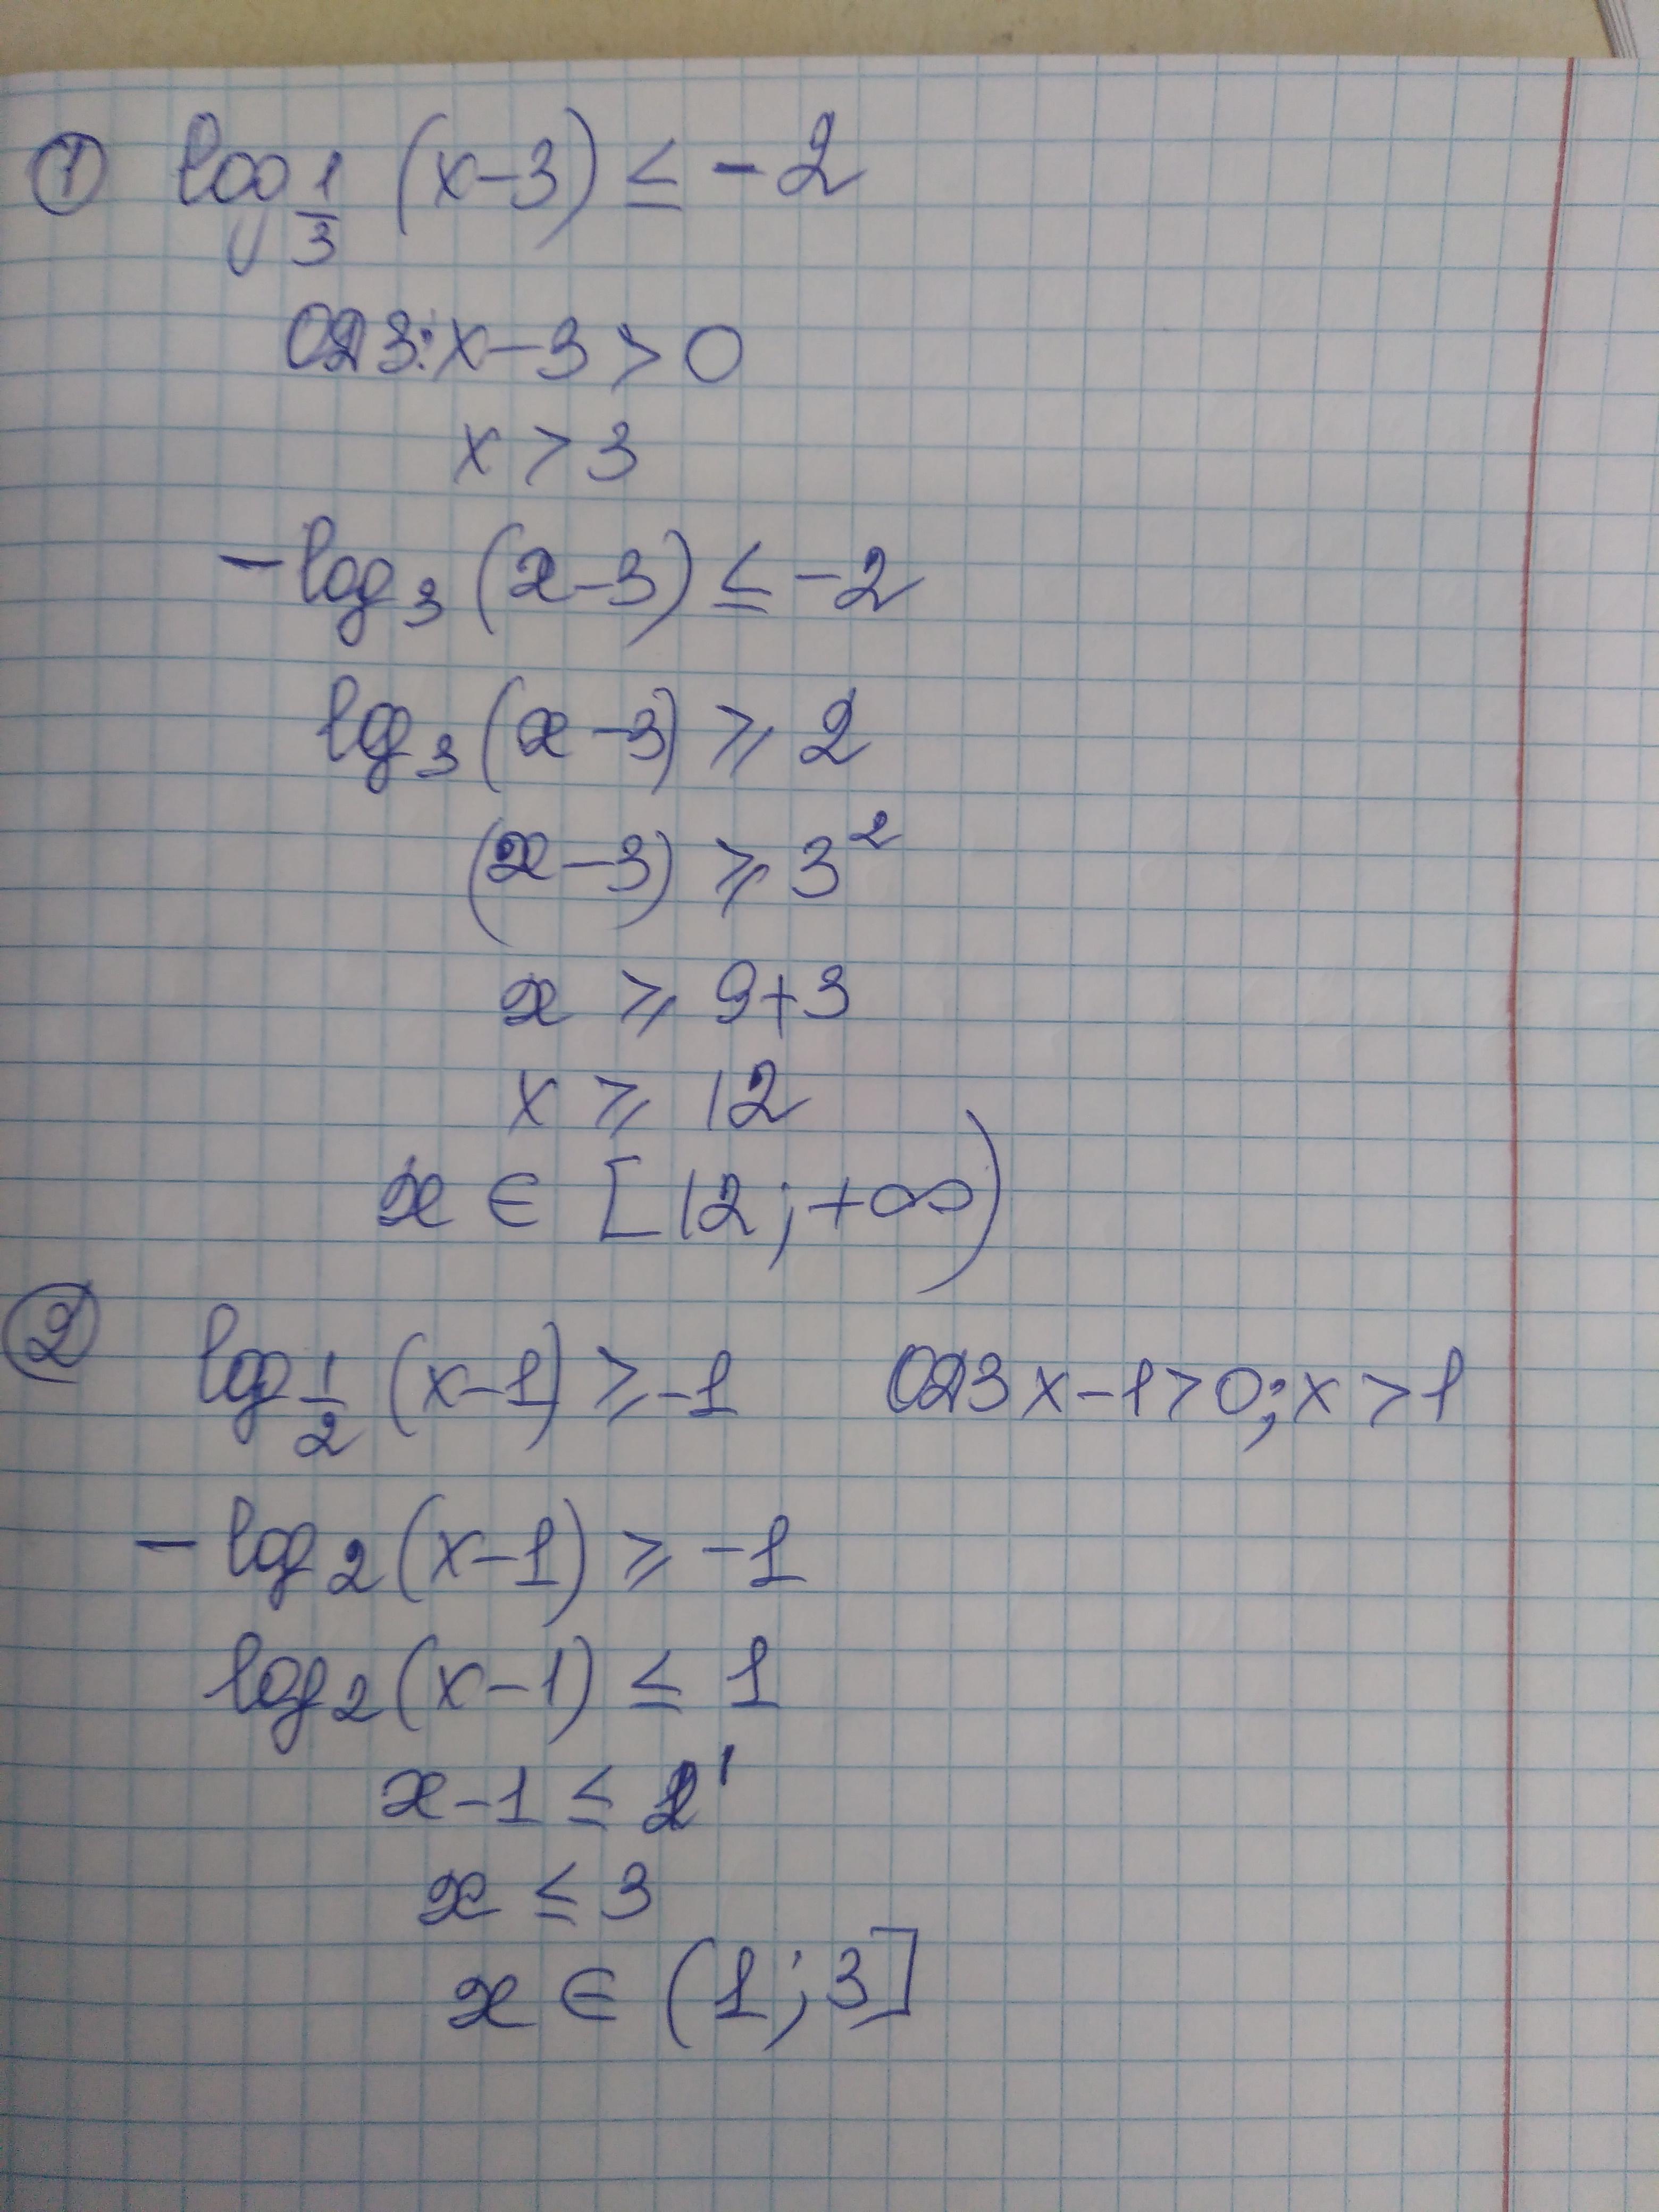 ① log 1/3 (x-3) ≤ -2
ОДЗ: x-3 > 0
x > 3
- log₃ (x-3) ≤ -2
log₃ (x-3) ⩾ 2
(x-3) ⩾ 3²
x ⩾ 9+3
x ⩾ 12
x ∈ [12; +∞)
② log 1/2 (x-1) ⩾ -1 ОДЗ x-1>0; x>1
- log₂ (x-1) ⩾ -1
log₂ (x-1) ≤ 1
x-1 ≤ 2¹
x ≤ 3
x ∈ (1; 3]